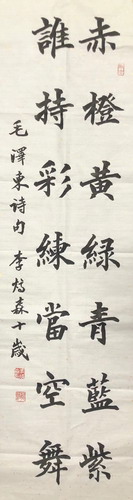 赤橙黃緑青藍紫
誰持彩練當空舞
毛澤東诗句 李炫森十歲